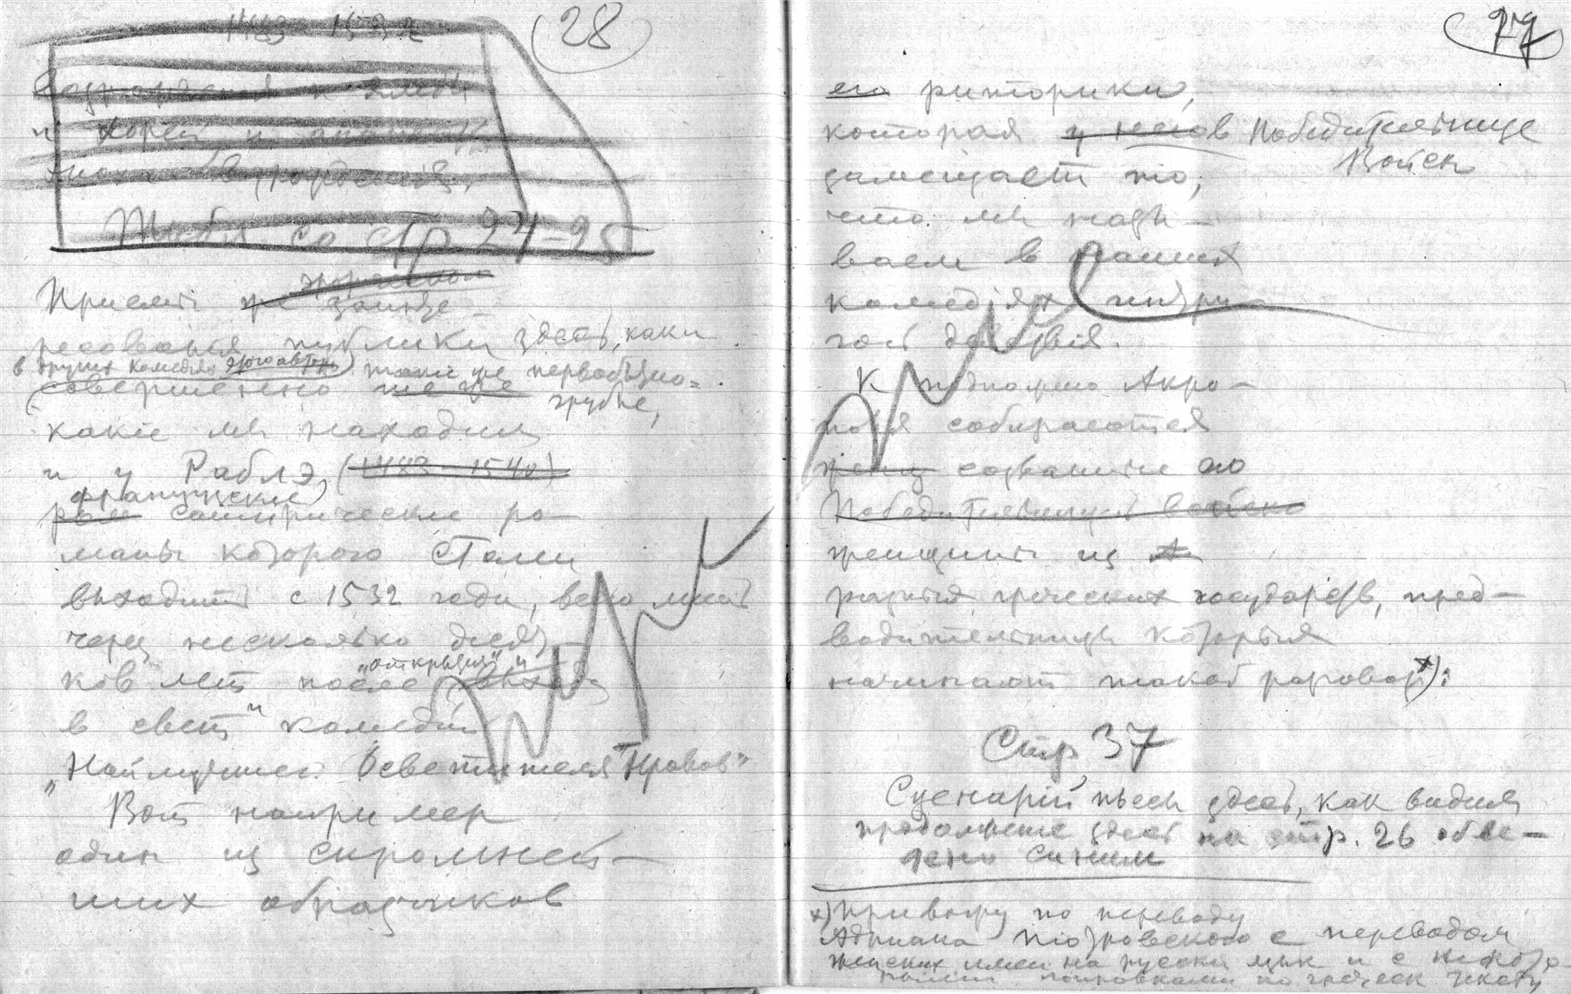 28
1483 1532
и
Возрождения.
со стр 24-25
Приемы заинте-
ресования публики здесь, как и
в других комедиях этого автора, такие же первобытно-
совершенно те же грубые,
какие мы находим
и у Раблэ, (1483-1540)
французские
сатирические ро-
маны которого стали
выходить с 1532 года, всего лишь
через несколько десят-
ков лет после "открытия" и
в свет комедий
"Наилучшего Осветителя Нравов"
Вот например
один из скромней-
ших образчиков
27
его риторики,
которая у него в Победительнице
Войск
замещает то,
что мы назы-
ваем в наших
комедиях интри-
гой действия.
К подножию Акро-
поля собираются
созванные
Победительницей войск
женщины из
разных греческих государств, пред-
водительницы которых
начинают такой разговор x):
Стр 37
Сценарий пьесы здесь, как видим
продолжение здесь на стр. 26 обве-
дено синим
x) Привожу по переводу
Адриана Пиотровского с переводом
женских имен на русский язык и с некото-
рыми поправками по греческ тексту